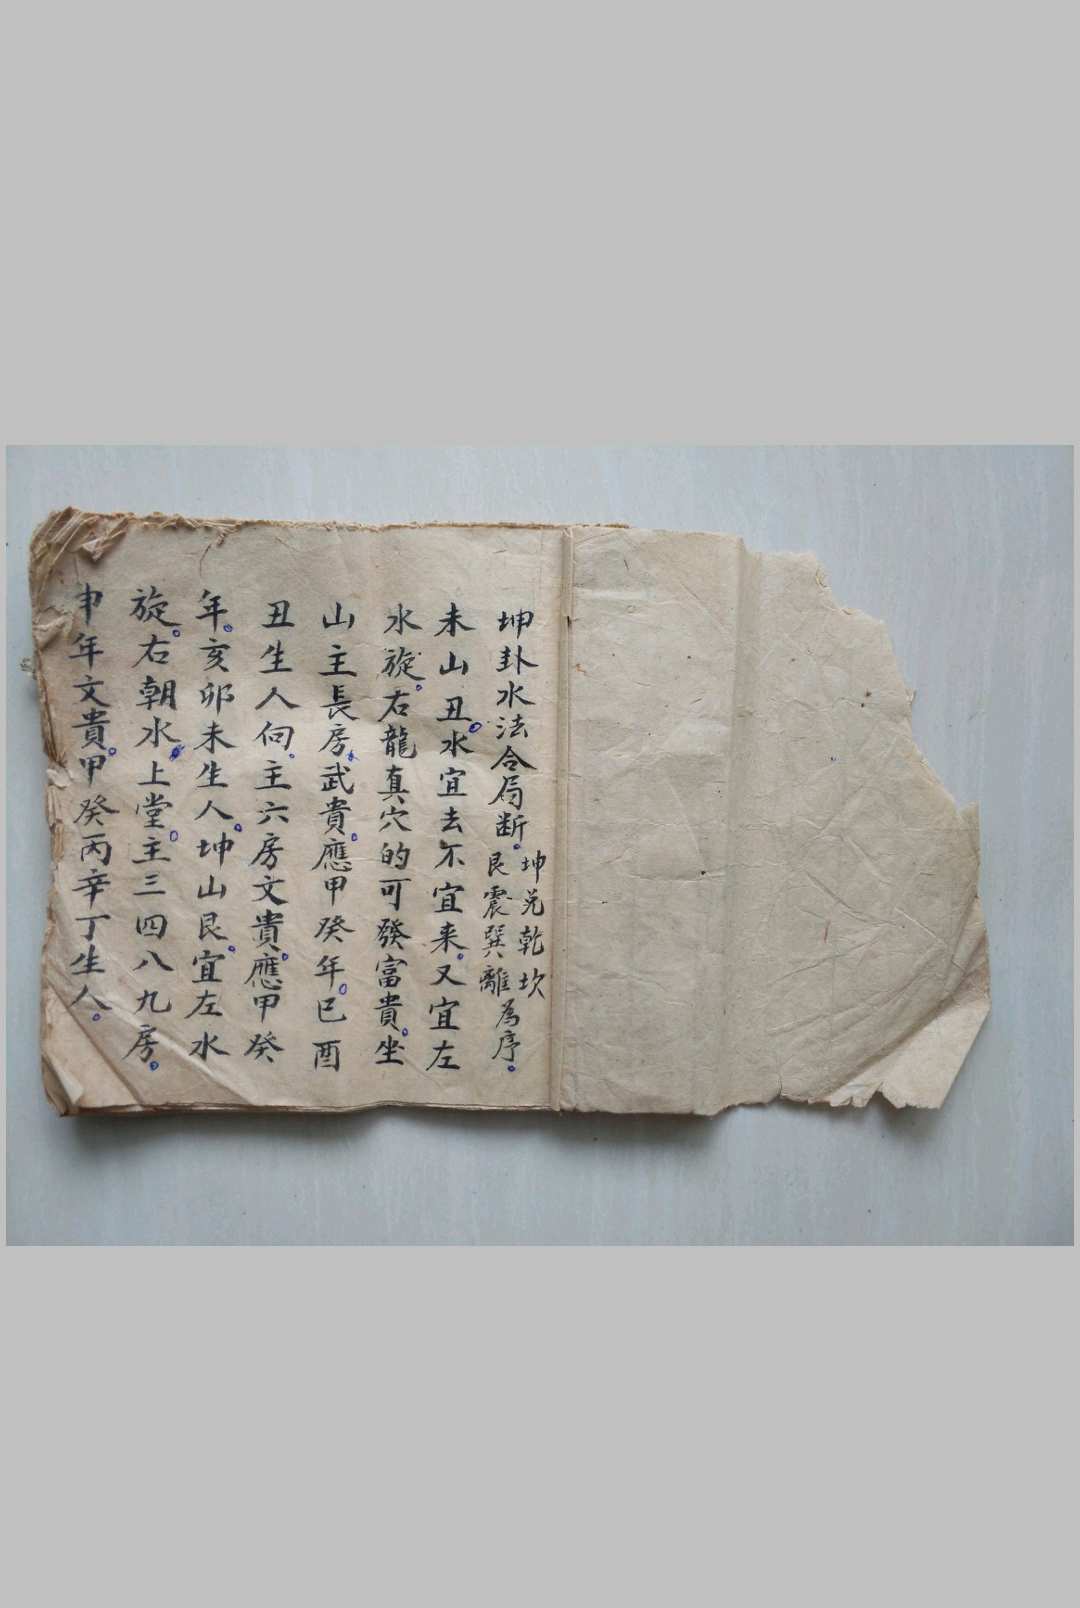 坤卦水法合局断。坤兑乾坎艮震巽離為序。
未山丑。水宜去不宜来。又宜左
水旋。右龍真穴的可發富貴。坐
山主長房。武貴。應甲癸年。巳酉
丑生人向。主六房文貴。應甲癸
年。亥卯未生人。坤山艮。宜左水
旋。右朝水。上堂。主三四八九房。
申年文貴。甲癸丙辛丁生人。